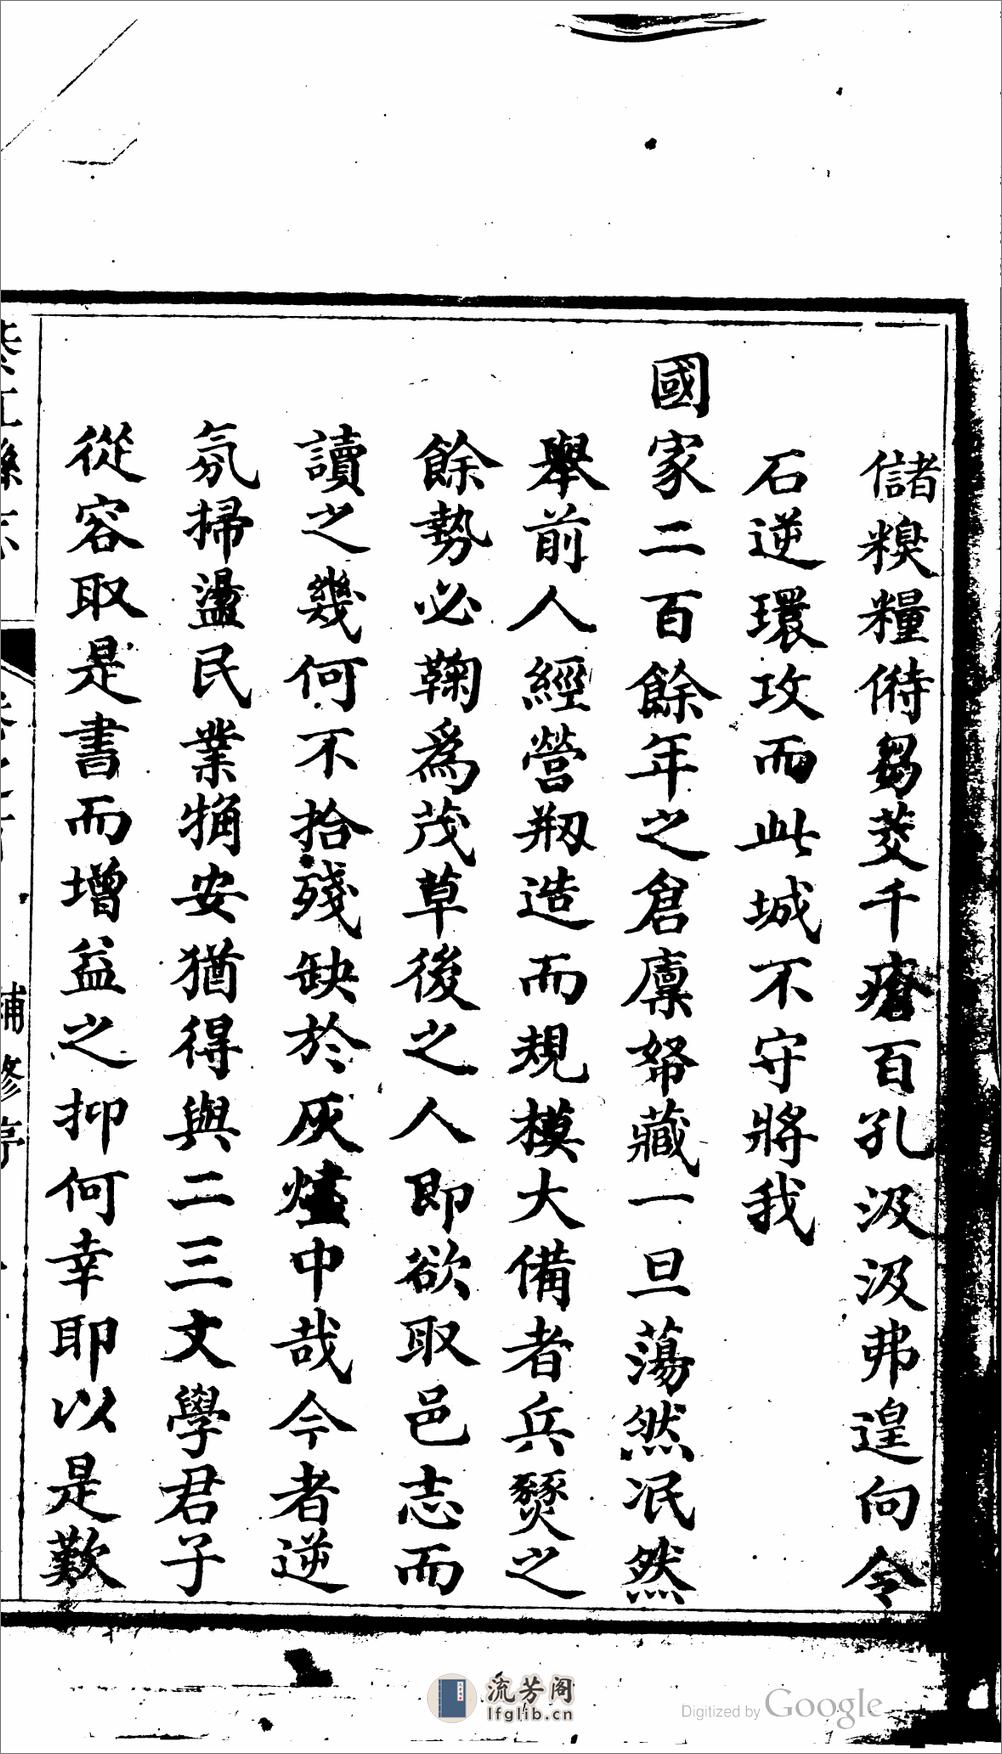 儲糗糧偫芻茭千瘡百孔汲汲弗遑向令
石逆環攻而此城不守將我
國家二百餘年之倉廩帑藏一旦蕩然泯然
舉前人經營剏造而規模大備者兵燹之
餘勢必鞠爲茂草後之人即欲取邑志而
讀之幾何不拾殘缺於灰燼中哉今者逆
氛掃盪民業觕安猶得與二三文學君子
從容取是書而增益之抑何幸耶以是歎
綦江縣志
補修序
流芳阁
lfglib.cn
Digitized by Google